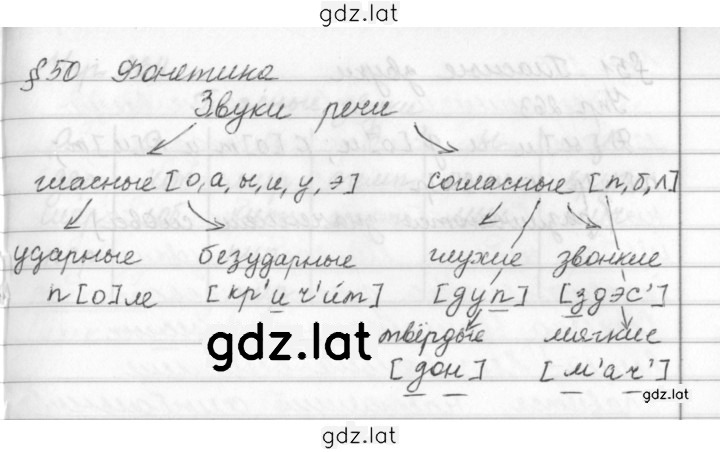 gdz.lat
§50 Фонетика
Звуки речи
гласные [о, а, ы, и, у, э] согласные [п, б, л]
ударные безударные глухие звонкие
п[о]ле [кр'ич'ит] [дуп] [здэс']
gdz.lat твёрдые мягкие
[дон] [м'ач']
gdz.lat
gdz.lat